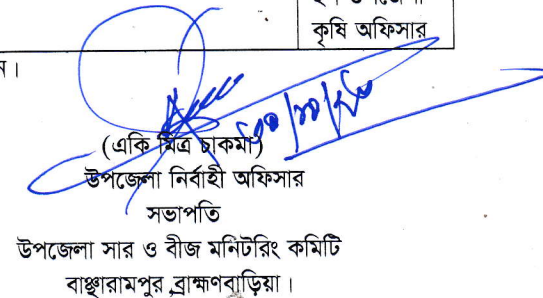 কৃষি অফিসার
ন।
(একি মিত্র চাকমা)
উপজেলা নির্বাহী অফিসার
সভাপতি
উপজেলা সার ও বীজ মনিটরিং কমিটি
বাঞ্ছারামপুর,ব্রাহ্মণবাড়িয়া।